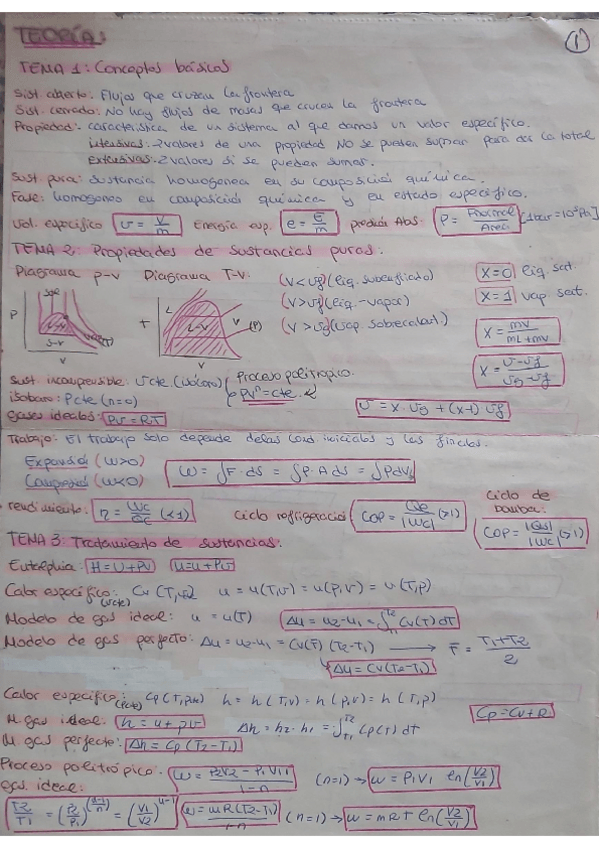 TEORÍA:
1
TEMA 1: Conceptos básicos
Sist. abierto: Flujos que cruzan la frontera
Sist. cerrado: No hay flujos de masas que crucen la frontera
Propiedad: característica de un sistema al que damos un valor específico.
intensivas: 2 valores de una propiedad NO se pueden sumar para dar la total
extensivas: 2 valores si se pueden sumar.
Sust pura: sustancia homogenea en su composición química.
Fase: homogeneo en composición química y en estado específico.
Vol. específico v = V/m Energía esp. e = E/m presión Abs: P = Fnormal/Area [1bar = 10⁵Pa]
TEMA 2: Propiedades de sustancias puras.
Diagrama p-v Diagrama T-v. (v < vf) (liq. subenfriado) X=0 liq sat.
(v > vf) (liq.-vapor) X=1 vap sat.
(v > vg) (vap sobrecalent.) X = mv/(mL+mv)
P V T V L L-V V (P)
S-L L-V S-V (T)
X = (v-vf)/(vg-vf)
Sust. incompresible: v cte (isócoro) Proceso politrópico.
isobaro: P cte (n=0) Pvⁿ = cte.
v = X·vg + (x-1) vf
Gases ideales: Pv = RT
Trabajo: El trabajo solo depende de las cond. iniciales y las finales.
Expansión (W>0)
Compresión (W<0) W = ∫F·ds = ∫P·A ds = ∫PdV
rendimiento: η = Wc/Qc (<1) Ciclo refrigeración COP = Qe/|Wc| (>1) Ciclo de bomba: COP = |Qs|/|Wc| (>1)
TEMA 3: Tratamiento de sustancias.
Entalpia: H = U + PV u = u + Pv
Calor específico: Cv (T, v) u = u(T,v) = u(p,v) = u(T,p)
(v cte)
Modelo de gas ideal: u = u(T) Δu = u2-u1 = ∫T1 T2 Cv(T) dT
Modelo de gas perfecto: Δu = u2-u1 = Cv(T̄) (T2-T1) → T̄ = (T1+T2)/2
Δu = Cv(T2-T1)
Calor específico: Cp (T, p) h = h(T,v) = h(p,v) = h(T,p)
(p cte) Cp = Cv + R
M gas ideal: h = u + pv Δh = h2-h1 = ∫T1 T2 Cp(T) dT
M gas perfecto: Δh = Cp (T2-T1)
Proceso politrópico: W = (P2V2 - P1V1)/(1-n) (n=1) → W = P1V1 ln(V2/V1)
Gas. ideal:
T2/T1 = (P2/P1)^((n-1)/n) = (V1/V2)^(n-1) W = mR(T2-T1)/(1-n) (n=1) → W = mRT ln(V2/V1)